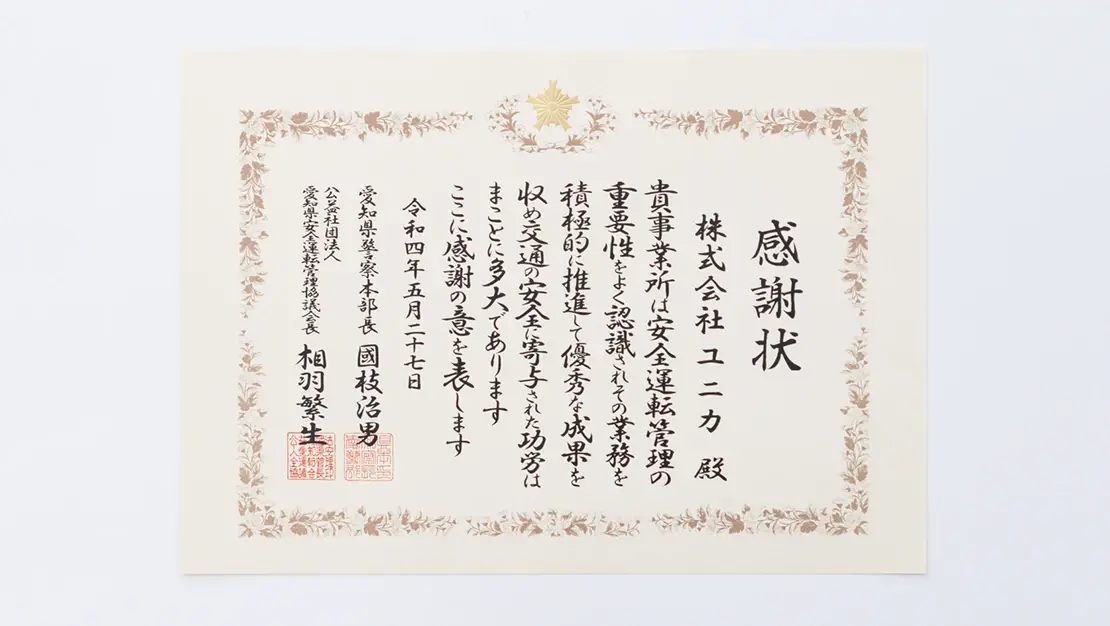 感謝状
株式会社ユニカ 殿
貴事業所は安全運転管理の
重要性をよく認識されその業務を
積極的に推進して優秀な成果を
収め交通の安全に寄与された功労は
まことに多大であります
ここに感謝の意を表します
令和四年五月二十七日
愛知県警察本部長 國枝治男
公益社団法人
愛知県安全運転管理協議会長 相羽繁生